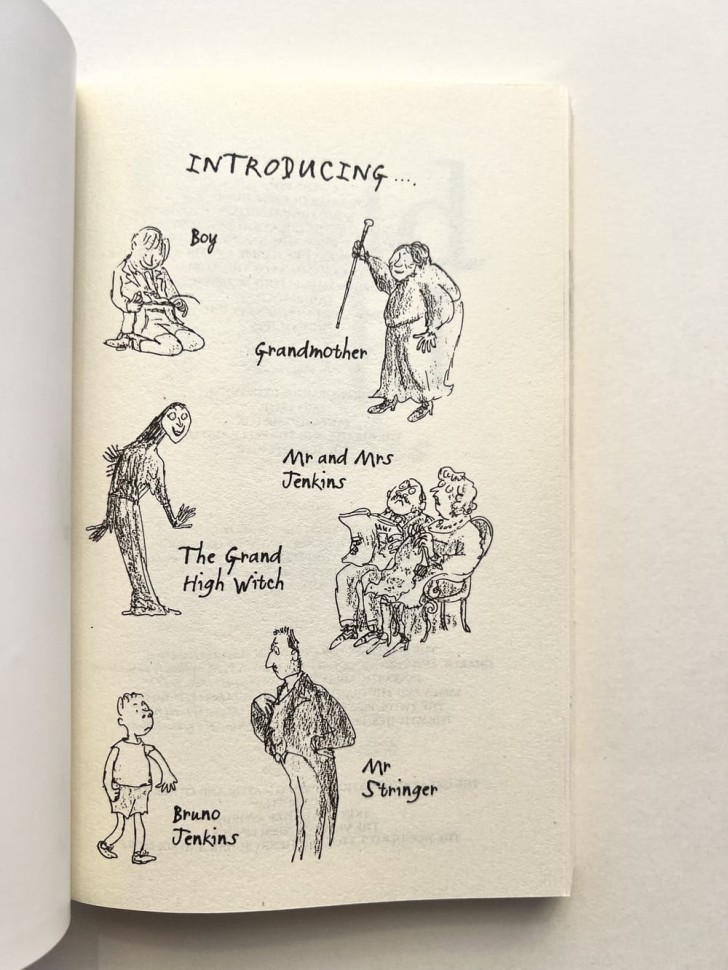 INTRODUCING....
Boy
Grandmother
Mr and Mrs
Jenkins
The Grand
High Witch
Mr
Stringer
Bruno
Jenkins